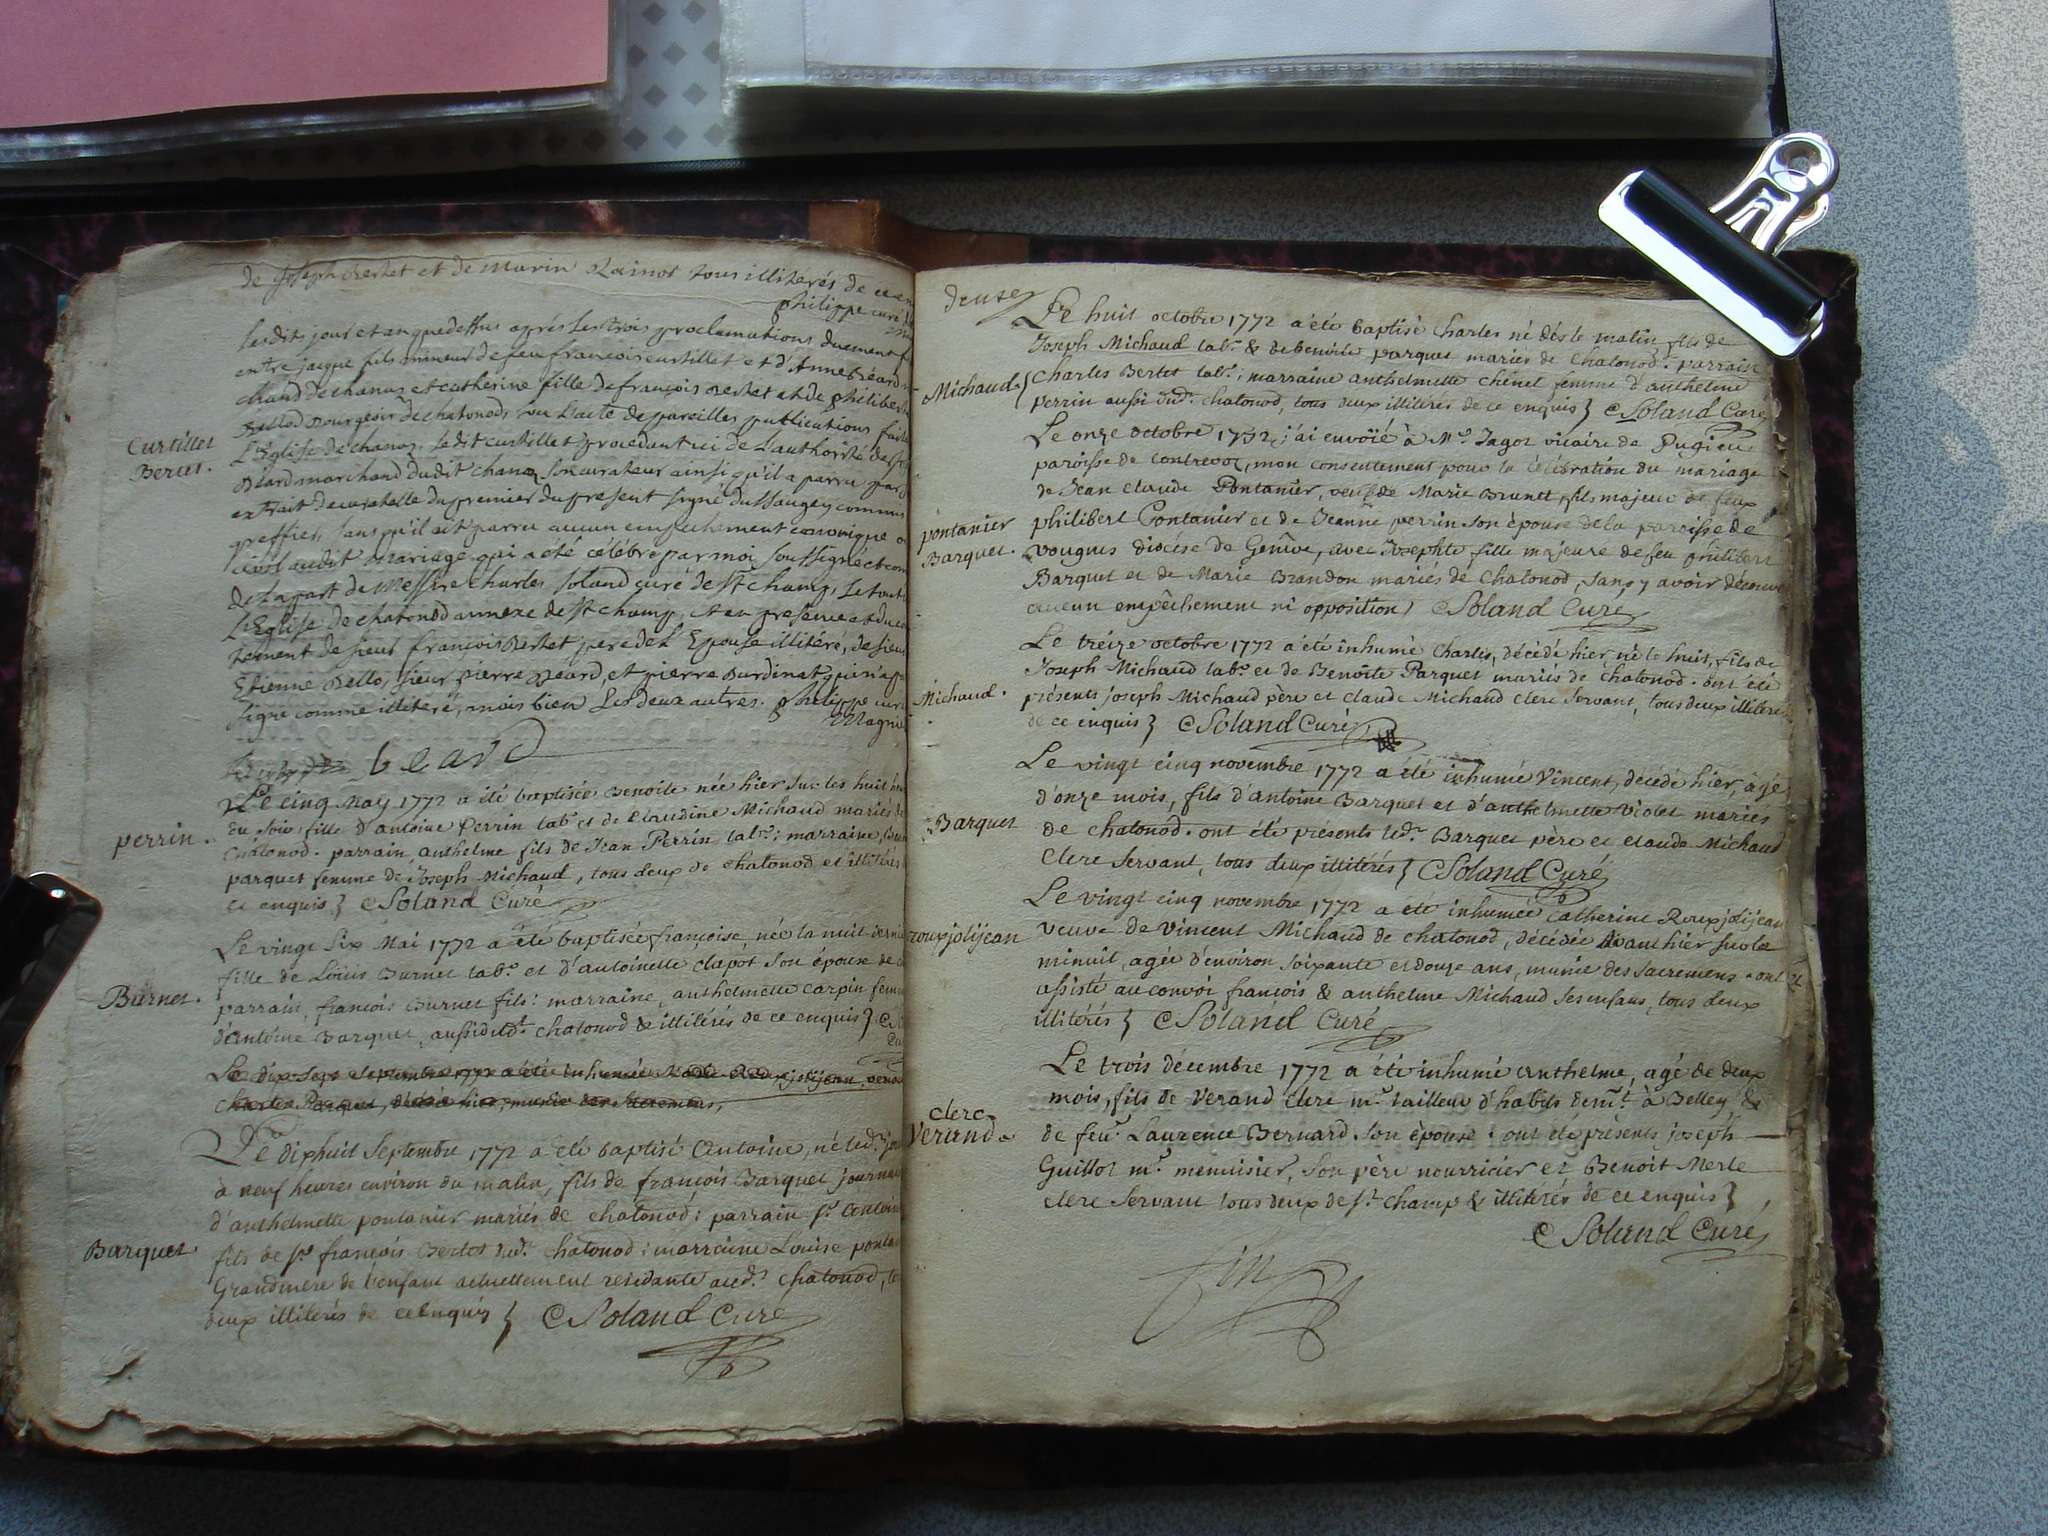 de Joseph Bertet et de Marin tous illiterés de ce en
philippe curé
lesdits jour et an que dessus après les trois proclamations duement f
entre jacque fils mineur de feu françois curtillet et d'Anne béard
chand de chanaz et catherine fille de françois Bertet et de philiberte
Bellod Bourgeois de chatonod, vu l'acte de pareilles publications faites
Curtillet
Bertet.
L'Eglise de chanaz, ledit curtillet procedant ici de l'authorité de
Béard marchand dudit chanaz son curateur ainsi qu'il a parru par
extrait de curatelle du premier du present signé Dussaugey commis
greffier, sans qu'il ait parru aucun empechement canonique
civil audit mariage qui a été célébré par moi soussigné et com
de la part de Messire Charles soland curé de st champ, le tout
L'Eglise de chatonod annexe de st champ, et en presence et du con
tement de sieur françois Bertet pere de L'Epouse illitéré, de sieur
Etienne Bello, sieur pierre Beard, et pierre Burdinat qui n'a
signé comme illitéré, mois bien Les deux autres. philippe curé
Magni
beard
Le cinq may 1772 a été baptisée Benoite née hier sur les huit heu
du soir, fille d'antoine Perrin labr. et de Claudine Michaud mariés de
perrin.
chatonod. parrain, anthelme fils de Jean Perrin labr.; marraine,
parquet femme de Joseph Michaud, tous deux de chatonod et illitérés
ce enquis } CSoland Curé
Le vingt six Mai 1772 a été baptisée françoise, née la nuit derniè
fille de Loüis Burnet labr. et d'antoinette clapot son épouse de
Burnet.
parrain, françois Burnet fils: marraine, anthelmette carpin femme
d'antoine Barquet, aussi dudt. chatonod & illitérés de ce enquis }
Le dix sept Septembre 1772 a été inhumée Marie Rouxjolijean, veuve
Charles Parquet, décédée hier, munie des Sacremens,
Le dixhuit Septembre 1772 a été baptisé Antoine, né ledt. jour
à neuf heures environ du matin, fils de françois Barquet journa
d'anthelmette pontanier mariés de chatonod: parrain sr. Antoine
Barquet.
fils de sr. françois Bertet dudt. chatonod: marraine Louise ponta
Grandmere de l'enfant actuellement residante audt. chatonod,
deux illiterés de ce enquis } CSoland Curé
deuze
Le huit octobre 1772 a été baptisé Charles né dès le matin, fils de
Joseph Michaud labr. & de Benoite parquet mariés de Chatonod. parrain
Michaud. {
Charles Bertet labr.; marraine anthelmette chenet femme d'anthelme
perrin aussi dudt. chatonod, tous deux illitérés de ce enquis } CSoland Curé
Le onze octobre 1772, j'ai envoïé à Mr. Jagot vicaire de Pugieu
paroisse de Contrevoz, mon consentement pour la célébration du mariage
de Jean Claude Pontanier, veuf de Marie Brunet, fils majeur de feux
pontanier
Barquet.
philibert Pontanier et de Jeanne perrin son épouse de la paroisse de
vougnes diocése de Genève, avec Josephte fille majeure de feu philibert
Barquet et de Marie Brandon mariés de Chatonod, sans y avoir découvert
aucun empêchement ni opposition } CSoland Curé
Le treize octobre 1772 a été inhumé Charles, décédé hier, né le huit, fils de
Joseph Michaud labr. et de Benoite Parquet mariés de chatonod. ont été
Michaud.
présents joseph Michaud père et claude Michaud clerc servant, tous deux illitérés
de ce enquis } CSoland Curé
Le vingt cinq novembre 1772 a été inhumé Vincent, décédé hier, âgé
d'onze mois, fils d'antoine Barquet et d'anthelmette Violet mariés
Barquet
de chatonod. ont été présents ledt. Barquet père et claude Michaud
Clerc servant, tous deux illitérés } CSoland Curé
Le vingt cinq novembre 1772 a été inhumée Catherine Rouxjolijean
rouxjolijean
veuve de Vincent Michaud de chatonod, décédée avant hier sur la
minuit, agée d'environ soixante et douze ans, munie des sacremens. ont
assisté au convoi françois & anthelme Michaud ses enfans, tous deux
illitérés } CSoland Curé
Le trois décembre 1772 a été inhumé Anthelme, agé de deux
mois, fils de Verand Clerc mr. tailleur d'habits demt. à Belley &
clerc
Verand.
de feue. Laurence Bernard son épouse. ont été présents joseph
Guillot mr. menuisier, son père nourricier et Benoit Merle
clerc servant tous deux de st. Champ & illitérés de ce enquis }
CSoland Curé
fin